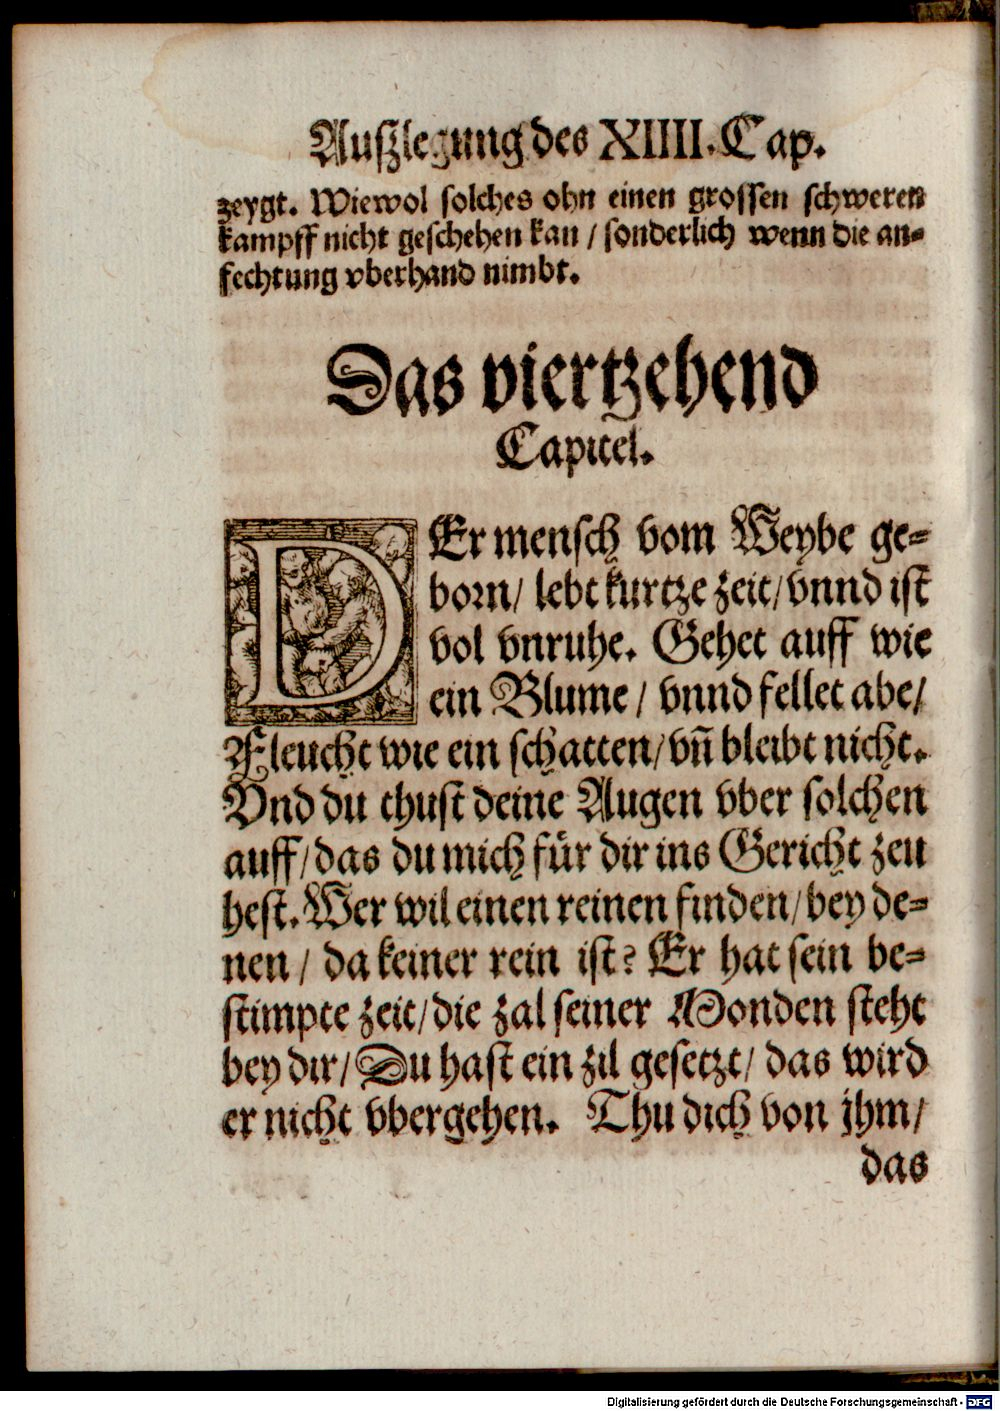 Auszlegung des XIIII. Cap.
zeygt. Wiewol solches ohn einen grossen schweren
kampff nicht geschehen kan / sonderlich wenn die an-
fechtung vberhand nimbt.
Das viertzehend
Capitel.
DEr mensch vom Weybe ge-
born / lebt kurtze zeit / vnnd ist
vol vnruhe. Gehet auff wie
ein Blume / vnnd fellet abe /
Fleucht wie ein schatten / vñ bleibt nicht.
Vnd du thust deine Augen vber solchen
auff / das du mich für dir ins Gericht zeu
hest. Wer wil einen reinen finden / bey de-
nen / da keiner rein ist? Er hat sein be-
stimpte zeit / die zal seiner Monden steht
bey dir / Du hast ein zil gesetzt / das wird
er nicht vbergehen. Thu dich von jhm /
das
Digitalisierung gefördert durch die Deutsche Forschungsgemeinschaft - DFG